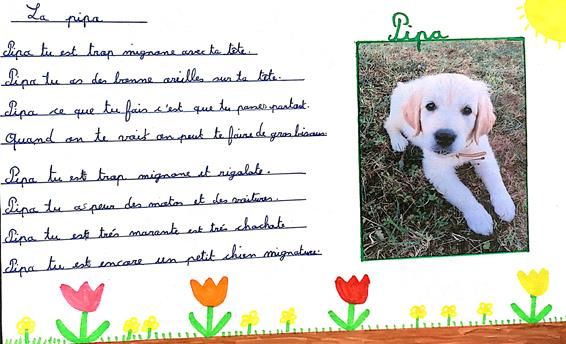 La pipa
Pipa
Pipa tu est trap mignane avec ta tête.
Pipa tu as des bonne areilles sur ta tete.
Pipa ce que tu fais c'est que tu passes partaut.
Quand on te vait on peut te faire de gros bisaux.
Pipa tu est trap mignane et rigalate.
Pipa tu as peur des matos et des vaitures.
Pipa tu est trés marante est trés chachate
Pipa tu est encare un petit chien mignature.